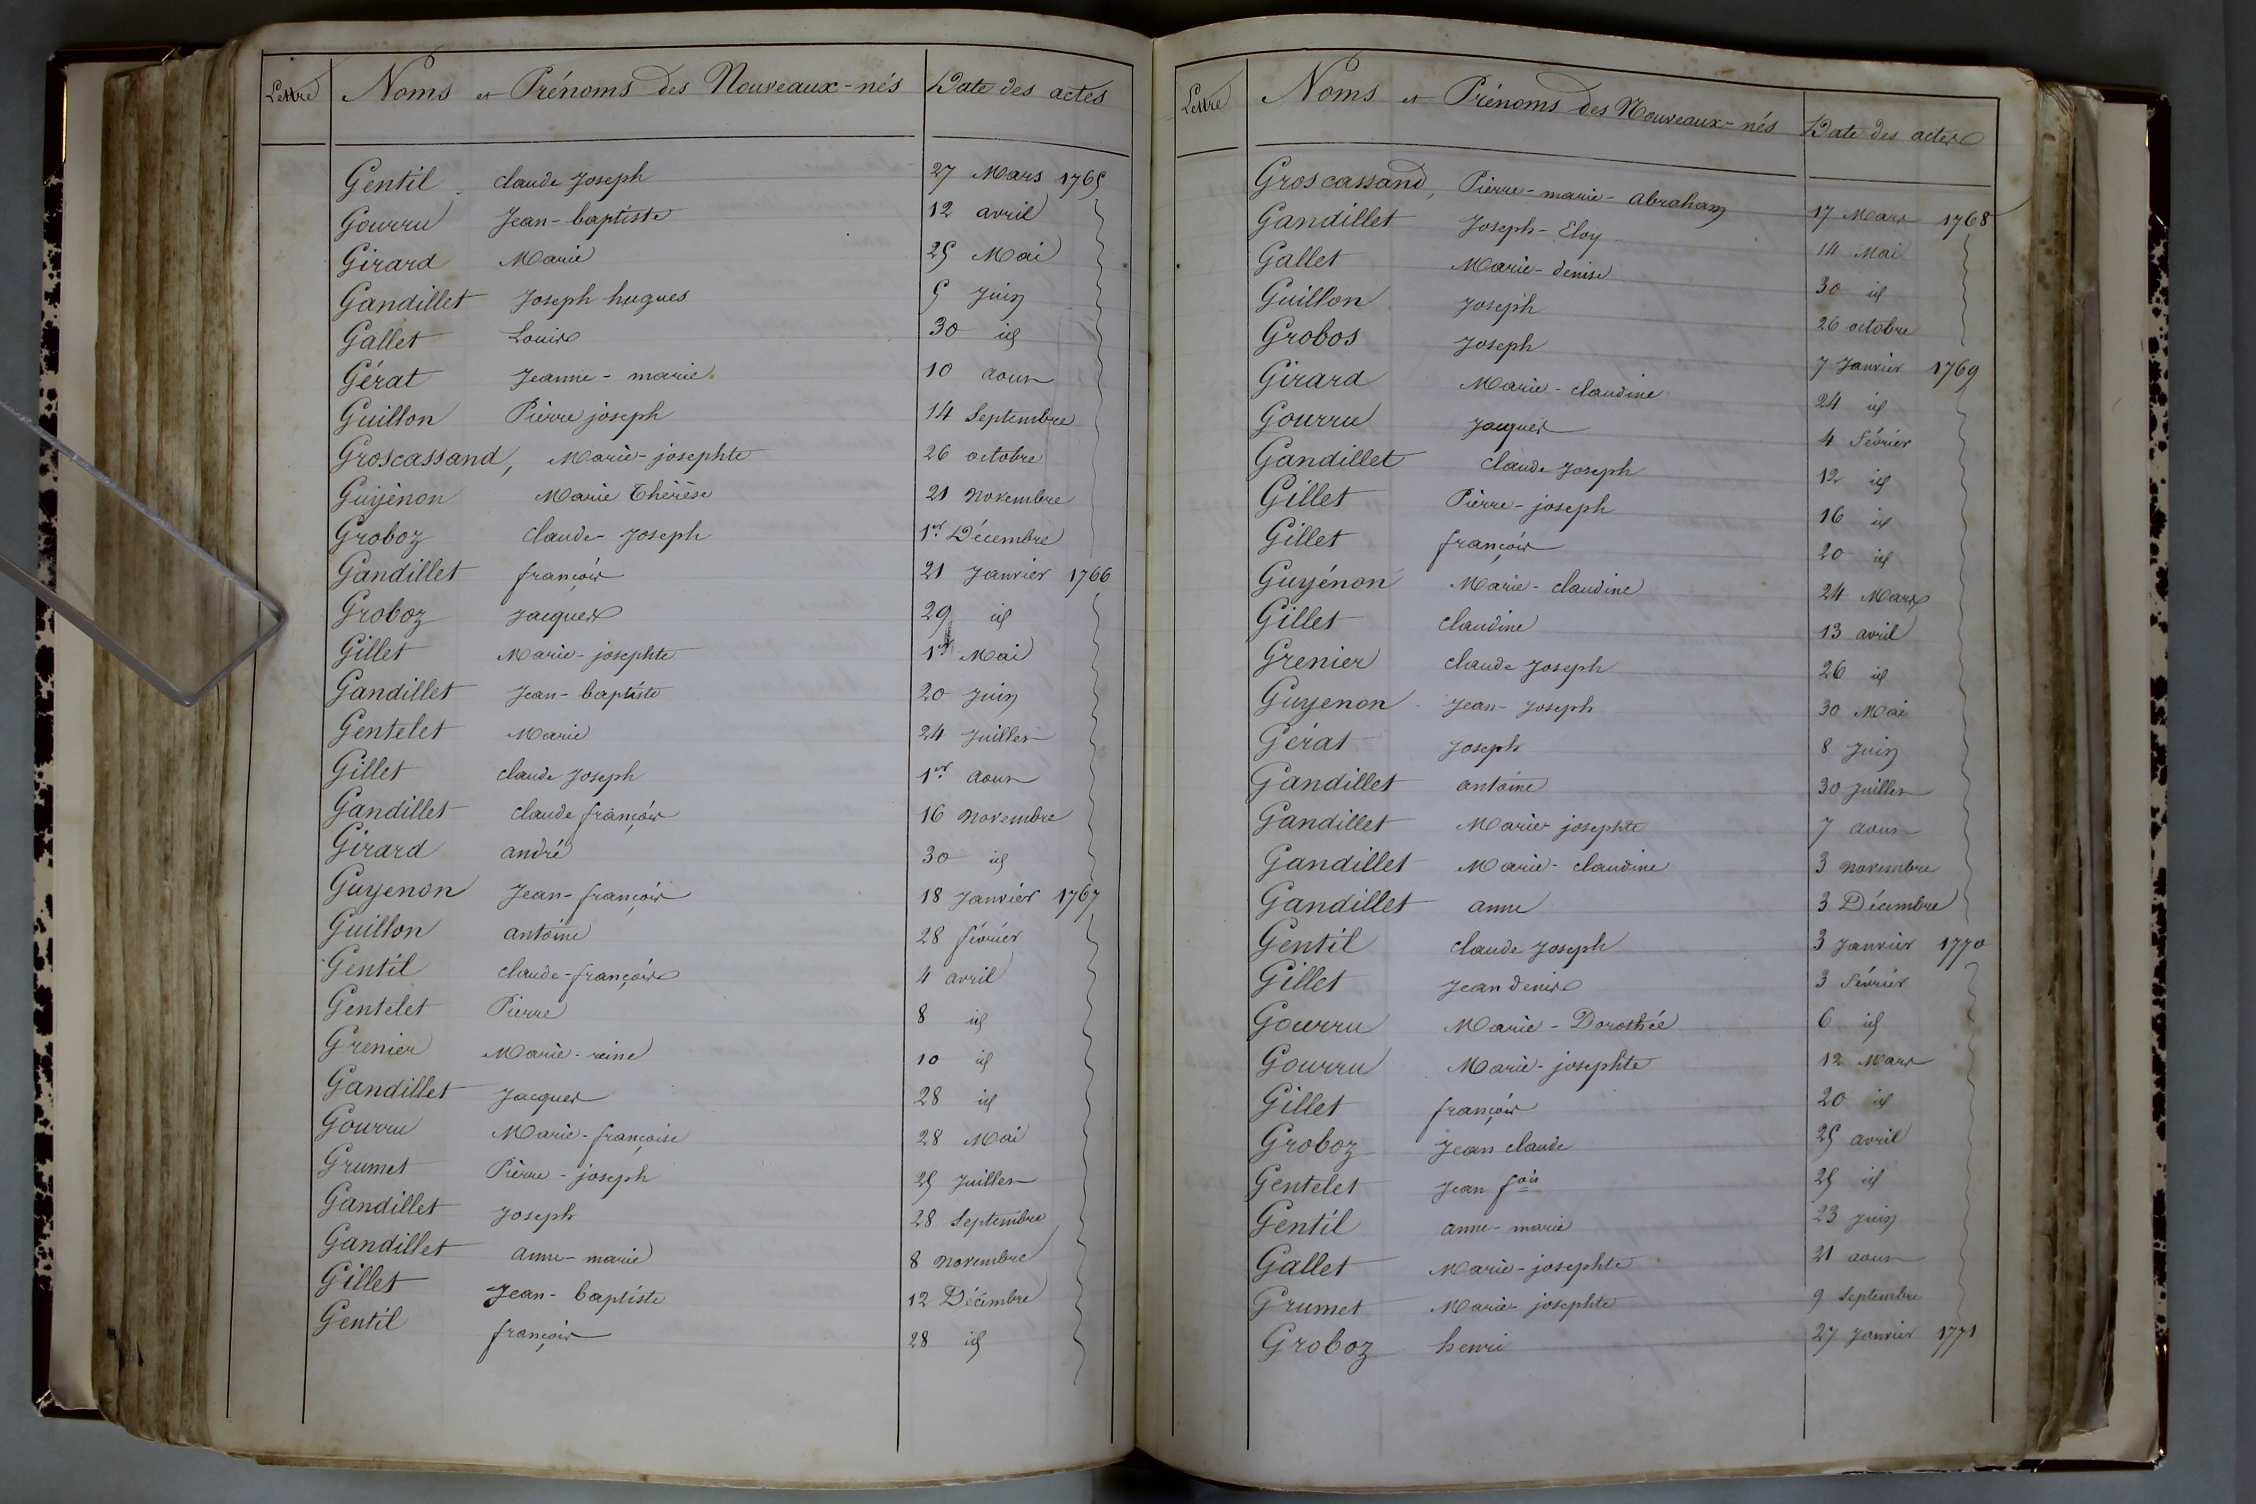 Lettre Noms et Prénoms des Nouveaux-nés Date des actes
Gentil claude Joseph 27 Mars 1765
Gourru Jean-baptiste 12 avril
Girard Marie 25 Mai
Gandillet Joseph hugues 5 Juin
Gallet Louis 30 id
Gérat Jeanne-marie 10 aout
Guillon Pierre joseph 14 Septembre
Groscassand, Marie-josephte 26 octobre
Guyénon Marie Thérèse 21 Novembre
Groboz claude-Joseph 1er Décembre
Gandillet françois 21 Janvier 1766
Groboz Jacques 29 id
Gillet Marie-josephte 1er Mai
Gandillet Jean-baptiste 20 Juin
Gentelet Marie 24 Juillet
Gillet claude Joseph 1er aout
Gandillet claude françois 16 Novembre
Girard andré 30 id
Guyenon Jean-françois 18 Janvier 1767
Guillon antoine 28 février
Gentil claude-françois 4 avril
Gentelet Pierre 8 id
Grenier Marie-reine 10 id
Gandillet Jacques 28 id
Gourru Marie-françoise 28 Mai
Grumet Pierre-joseph 25 Juillet
Gandillet Joseph 28 Septembre
Gandillet anne-marie 8 Novembre
Gillet Jean-baptiste 12 Décembre
Gentil françois 28 id
Lettre Noms et Prénoms des Nouveaux-nés Date des actes
Groscassand, Pierre-marie-abraham 17 Mars 1768
Gandillet Joseph-Eloy 14 Mai
Gallet Marie-denise 30 id
Guillon Joseph 26 octobre
Grobos Joseph 7 Janvier 1769
Girard Marie-claudine 24 id
Gourru Jacques 4 Février
Gandillet claude Joseph 12 id
Gillet Pierre-joseph 16 id
Gillet françois 20 id
Guyénon Marie-claudine 24 Mars
Gillet claudine 13 avril
Grenier claude Joseph 26 id
Guyenon Jean-Joseph 30 Mai
Gérat Joseph 8 Juin
Gandillet antoine 30 Juillet
Gandillet Marie josephte 7 aout
Gandillet Marie-claudine 3 Novembre
Gandillet anne 3 Décembre
Gentil claude Joseph 3 Janvier 1770
Gillet Jean denis 3 Février
Gourru Marie-Dorothée 6 id
Gourru Marie-josephte 12 Mars
Gillet françois 20 id
Groboz Jean claude 25 avril
Gentelet Jean fois 25 id
Gentil anne-marie 23 Juin
Gallet Marie-josephte 21 aout
Grumet Marie-josephte 9 Septembre
Groboz henri 27 Janvier 1771